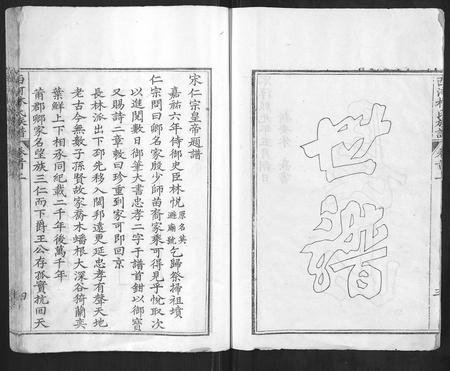 世譜
三
宋仁宗皇帝題譜
嘉祐六年侍御史林悅原名英避廟號乞歸祭掃祖墳
仁宗問曰卿名家殷少師苗裔家乘可得見乎悅取次
以進閱數日御筆大書忠孝二字于譜首鉗以御寶
又賜詩二章敕曰珍重到家可即回京
長林派出下邳先移入閩邦遠更延忠孝有聲天地
老古今無數子孫賢故家喬木蟠根大深谷猗蘭奕
葉鮮上下相承同紀載二千年後萬千年
莆郡鄉家名望族三仁而下爵王公存孤賣杭回天
西河林氏族譜
卷首一
四